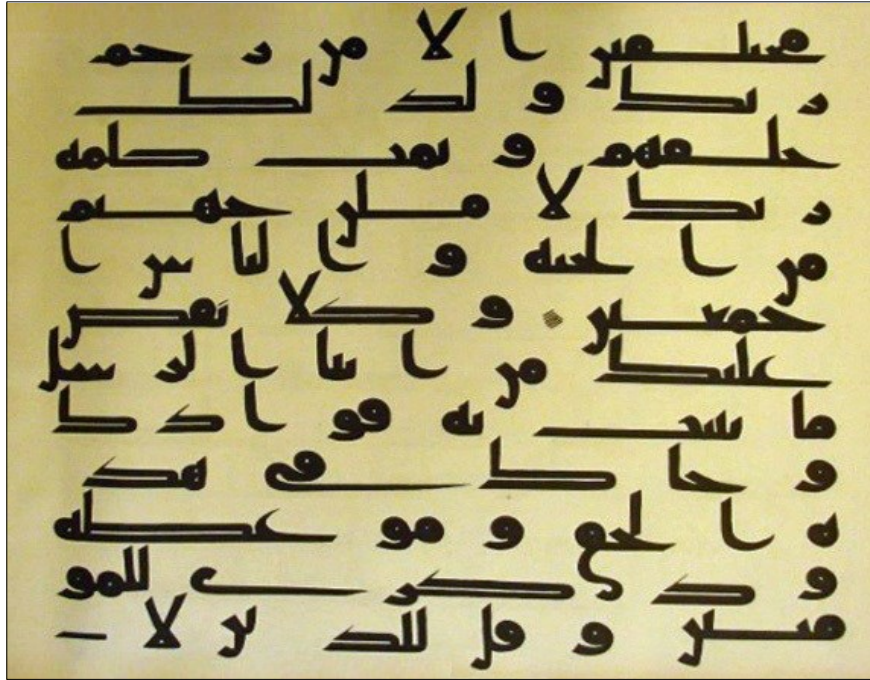 مختلفين الا من رحم
ربك ولذلك
خلقهم وتمت كلمه
ربك لاملن جهنم
من الجنه والناس ا
جمعين وكلا نقص
عليك من انبا الرسل
ما نثبت به فوادك
وجاك في هذ
ه الحق وموعظه
وذكرى للمو
منين وقل للذين لا